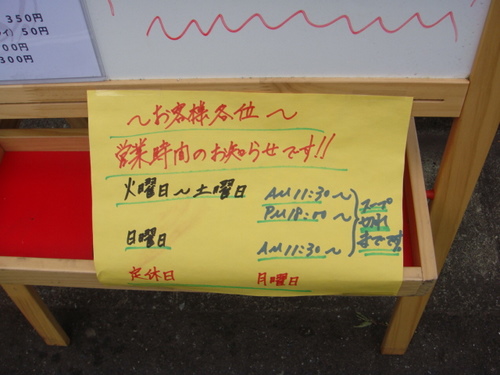 350円
50円
00円
300円
～お客様各位～
営業時間のお知らせです!!
火曜日～土曜日 AM 11:30～
PM 18:00～
スープ切れまでです
日曜日 AM 11:30～
定休日 月曜日